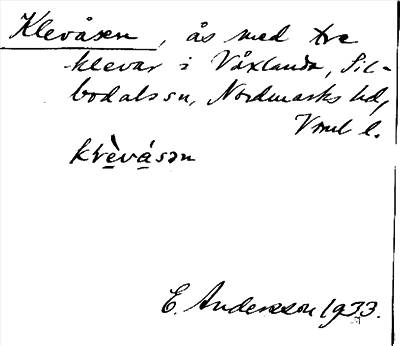 Klevåsen, ås med tre
klevar i Våxlanda, Sil-
bodals sn, Nordmarks hd,
Vrml l.
krè̱vá̱sən
E. Andersson 1933.